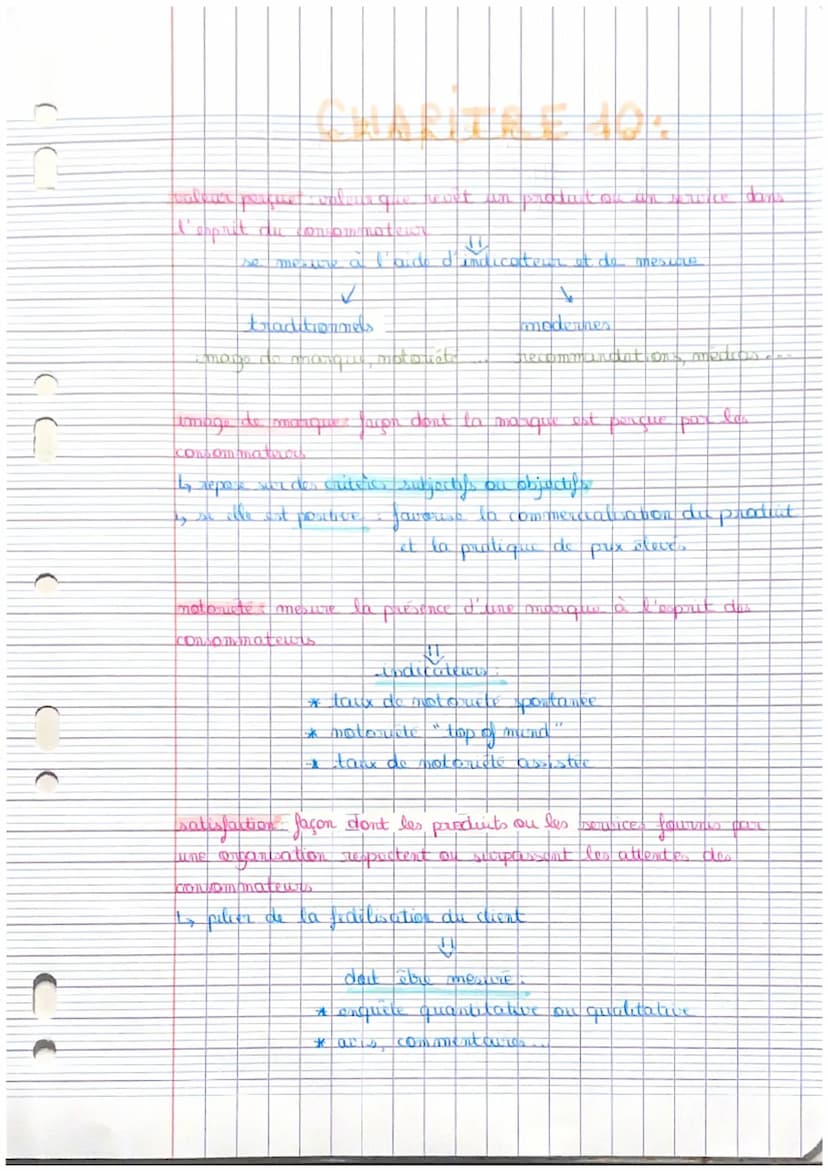 CHAPITRE 10:
valeur perçue : valeur que revêt un produit ou un service dans
l'esprit du consommateur
se mesure à l'aide d'indicateur et de mesure
traditionnels modernes
image de marque, notoriété ... recommandations, médias ...
image de marque : façon dont la marque est perçue par les
consommateurs
↳ repose sur des critères subjectifs ou objectifs
↳ si elle est positive : favorise la commercialisation du produit
et la pratique de prix élevés
notoriété : mesure la présence d'une marque à l'esprit des
consommateurs
indicateurs :
* taux de notoriété spontanée
* notoriété "top of mind"
* taux de notoriété assistée
satisfaction : façon dont les produits ou les services fournis par
une organisation respectent ou surpassent les attentes des
consommateurs
↳ pilier de la fidélisation du client
doit être mesuré :
* enquête quantitative ou qualitative
* avis, commentaires ...